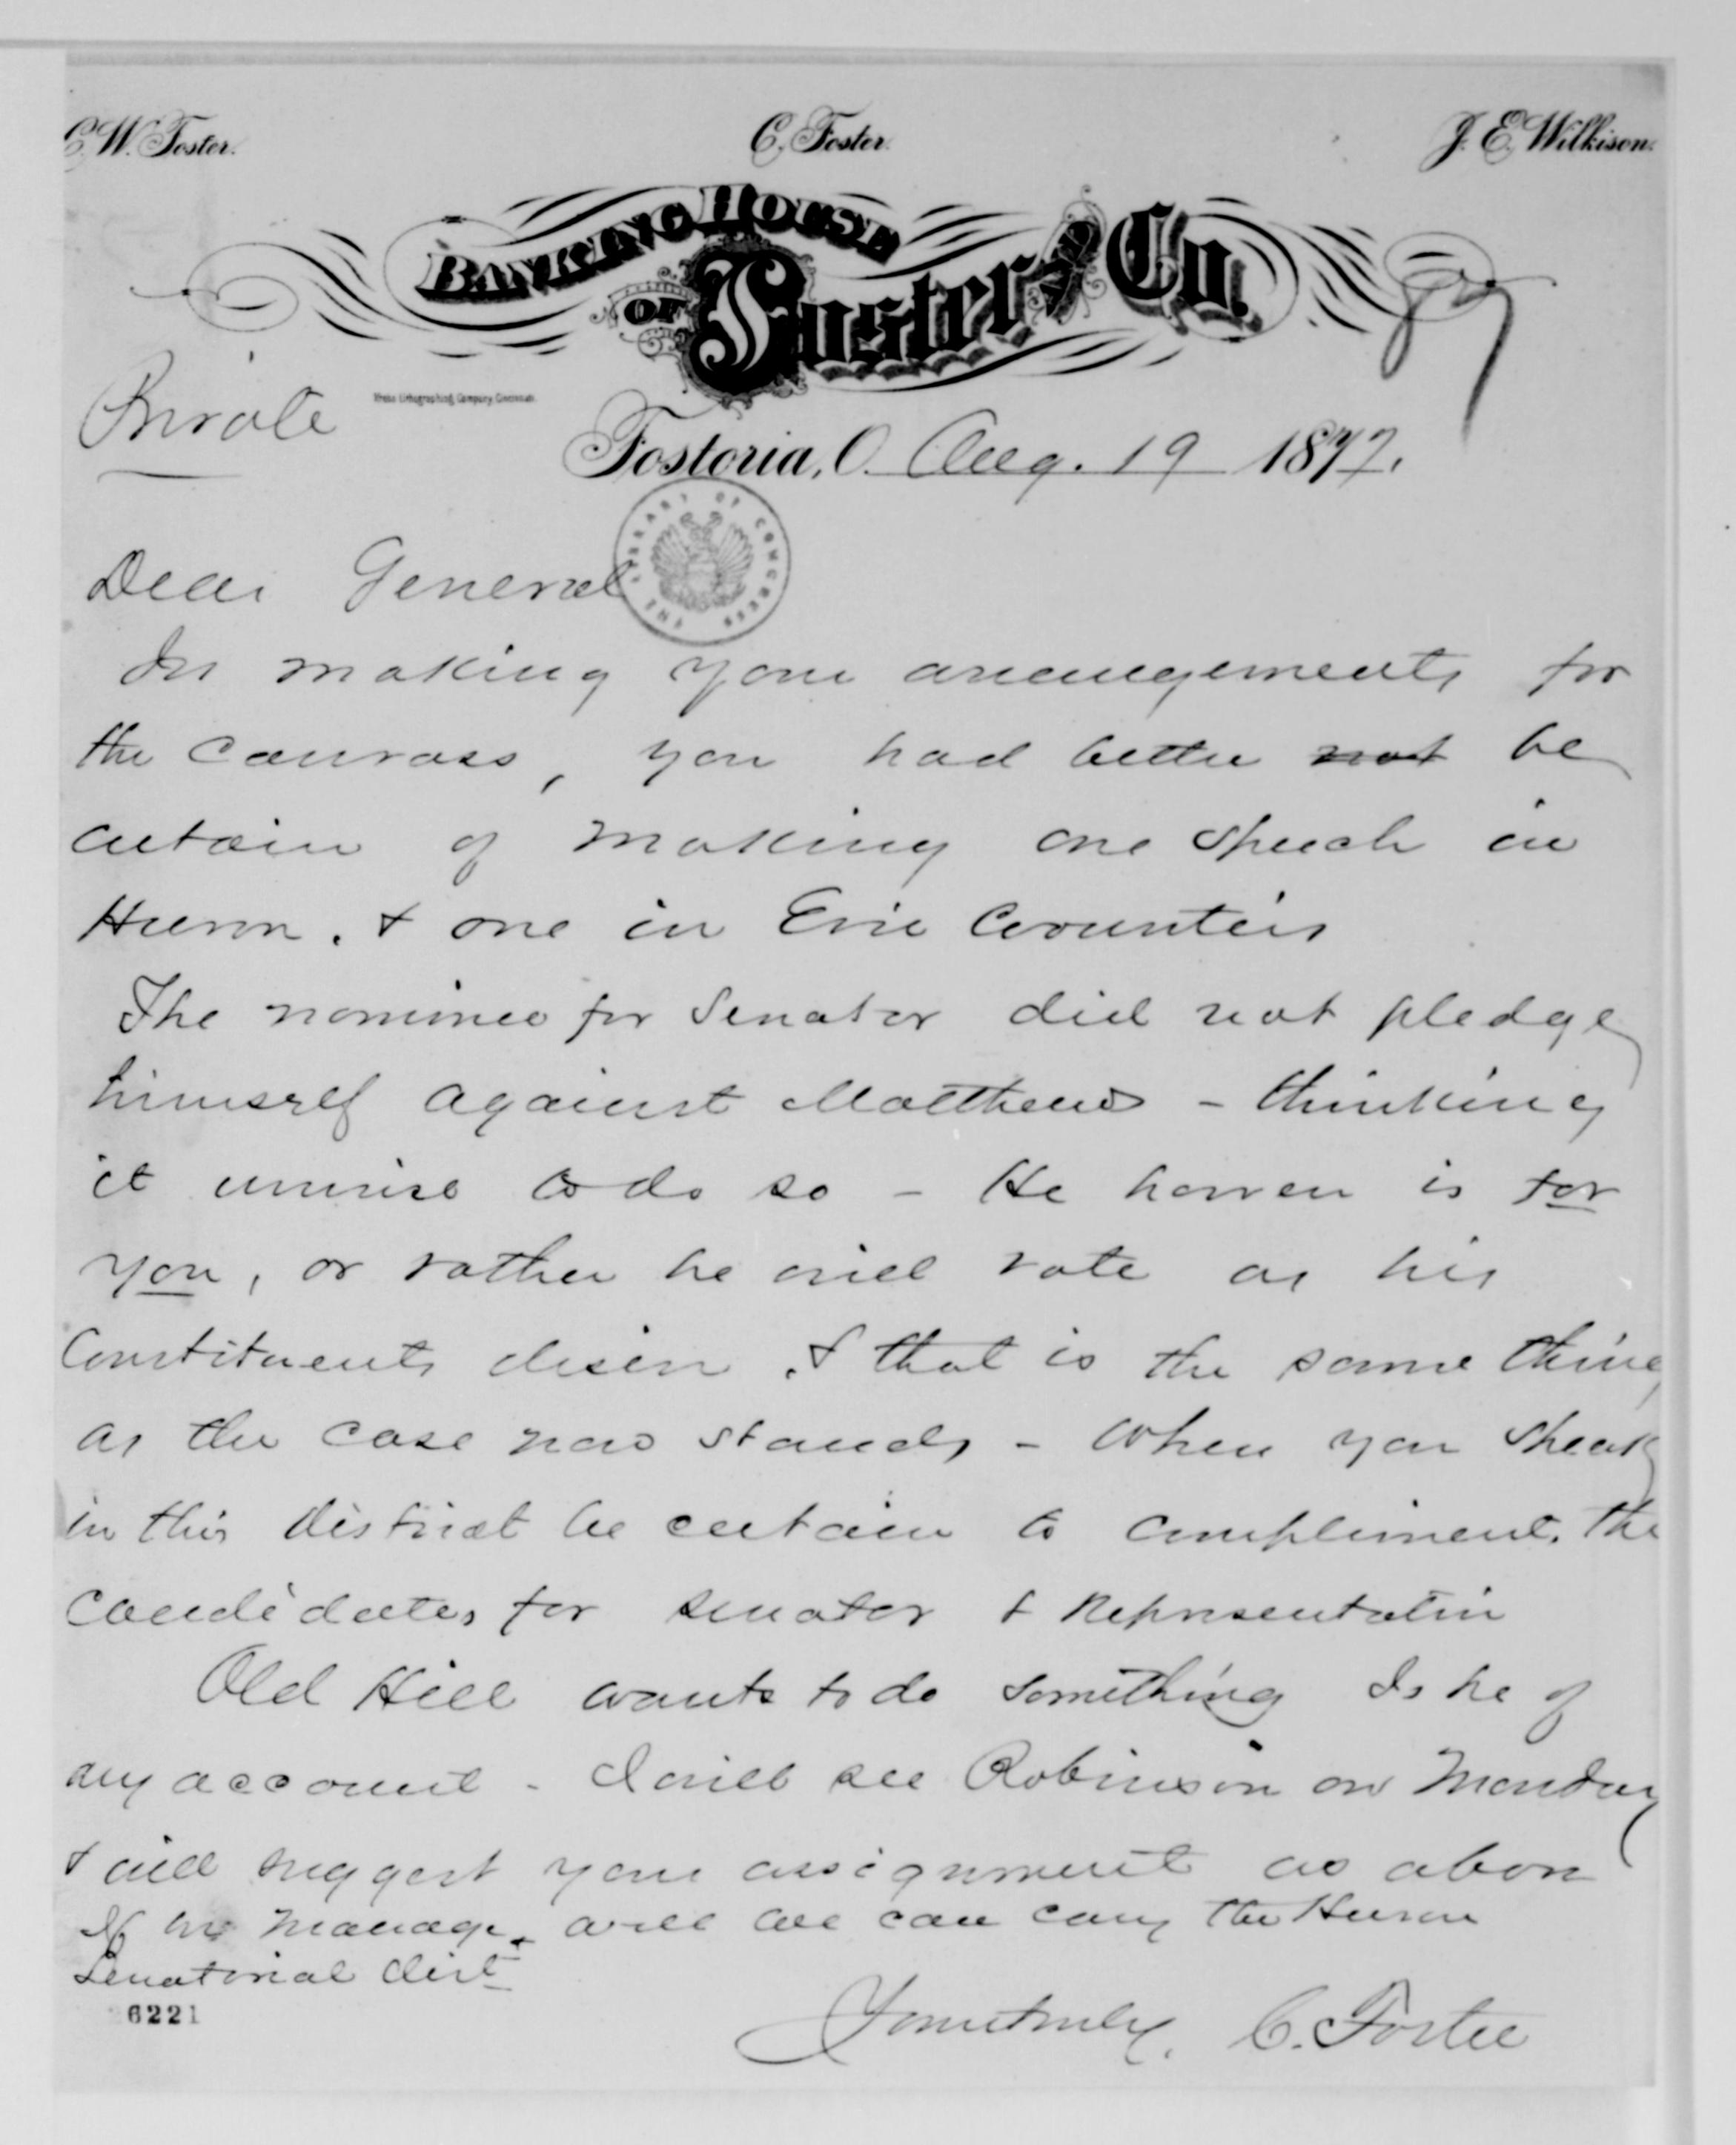 C. W. Foster. C. Foster. J. E. Wilkison.
BANKING HOUSE
OF Foster and Co.
Private
Lithographing Company, Cincinnati.
Fostoria, O. Aug. 19 1877.
THE LIBRARY OF CONGRESS
Dear General
In making your arrangements for
the canvass, you had better not be
certain of making one speech in
Huron. & one in Erie Counties
The nominee for Senator did not pledge
himself against Matthews - thinking
it unwise to do so - He however is for
you, or rather he will vote as his
Constituents desire. & that is the same thing
as the case now stands - When you speak
in this district be certain to compliment. the
candidates for senator & Representative
Old Hill wants to do something Is he of
any account - I will see Robinson on Monday
& will suggest your assignment as above
If we manage well we can carry the Huron
Senatorial dist
6221
Yours truly. C. Foster